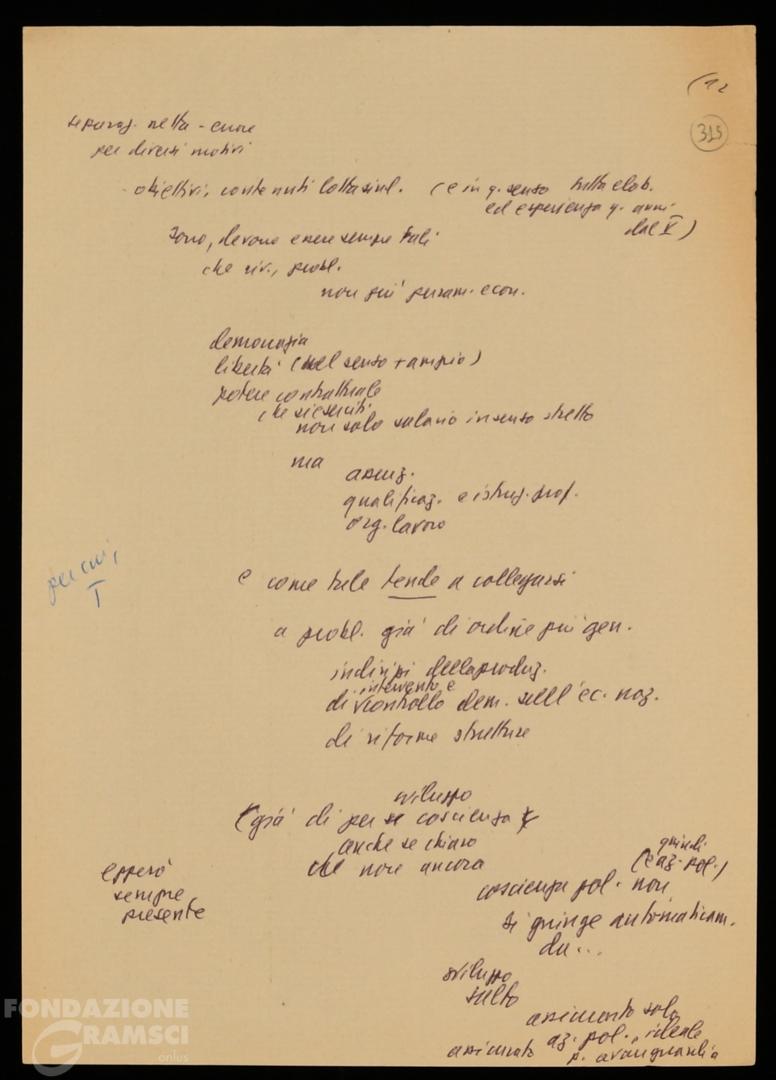 (12
315
separaz. netta - errore
per diversi motivi
- obiettivi, contenuti lotta sind. (e in q. senso tutta elab.
ed esperienza q. anni
dal V)
sono, devono essere sempre tali
che riv., probl.
non più puram. econ.
democrazia
libertà (nel senso + ampio)
potere contrattuale
che si eserciti
non solo salario in senso stretto
ma
assunz.
qualificaz. e istruz. prof.
org. lavoro
e come tale tende a collegarsi
per cui,
I
a probl. già di ordine più gen.
indirizzi della produz.
intervento e
di controllo dem. sull'ec. naz.
di riforme strutture
sviluppo
(già di per sé coscienza
anche se chiaro
che non ancora
quindi
(e az. pol.)
e però
sempre
presente
coscienza pol. non
si giunge automaticam.
da...
sviluppo
salto
assicurato solo
az. pol., ideale
assicurato p. avanguardia
FONDAZIONE
GRAMSCI
onlus